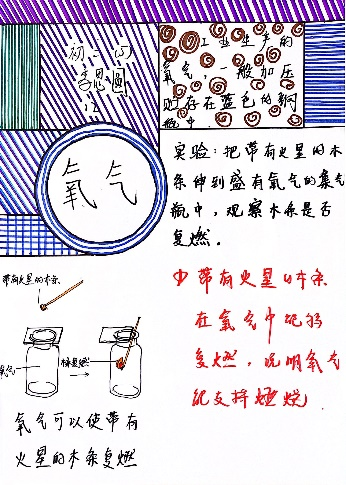 初二(5)
李思圆
12
工业生产的
氧气，一般加压
贮存在蓝色的钢
瓶中.
氧气
实验：把带有火星的木
条伸到盛有氧气的集气
瓶中，观察木条是否
复燃.
带有火星的木条
氧气
木条复燃
氧气可以使带有
火星的木条复燃
① 带有火星的木条
在氧气中能够
复燃，说明氧气
能支持燃烧